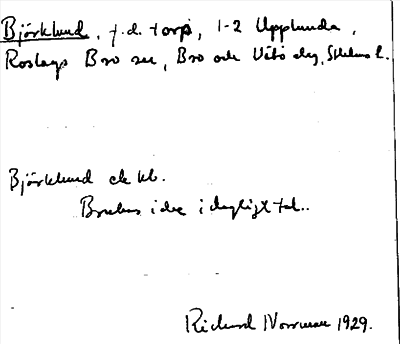 Björklund, f.d. torp, 1-2 Upplunda,
Roslags Bro sn, Bro och Vätö skg, Sthlms l.
Björklund ek kb.
Brukas icke i dagligt tal..
Rickard Norrman 1929.